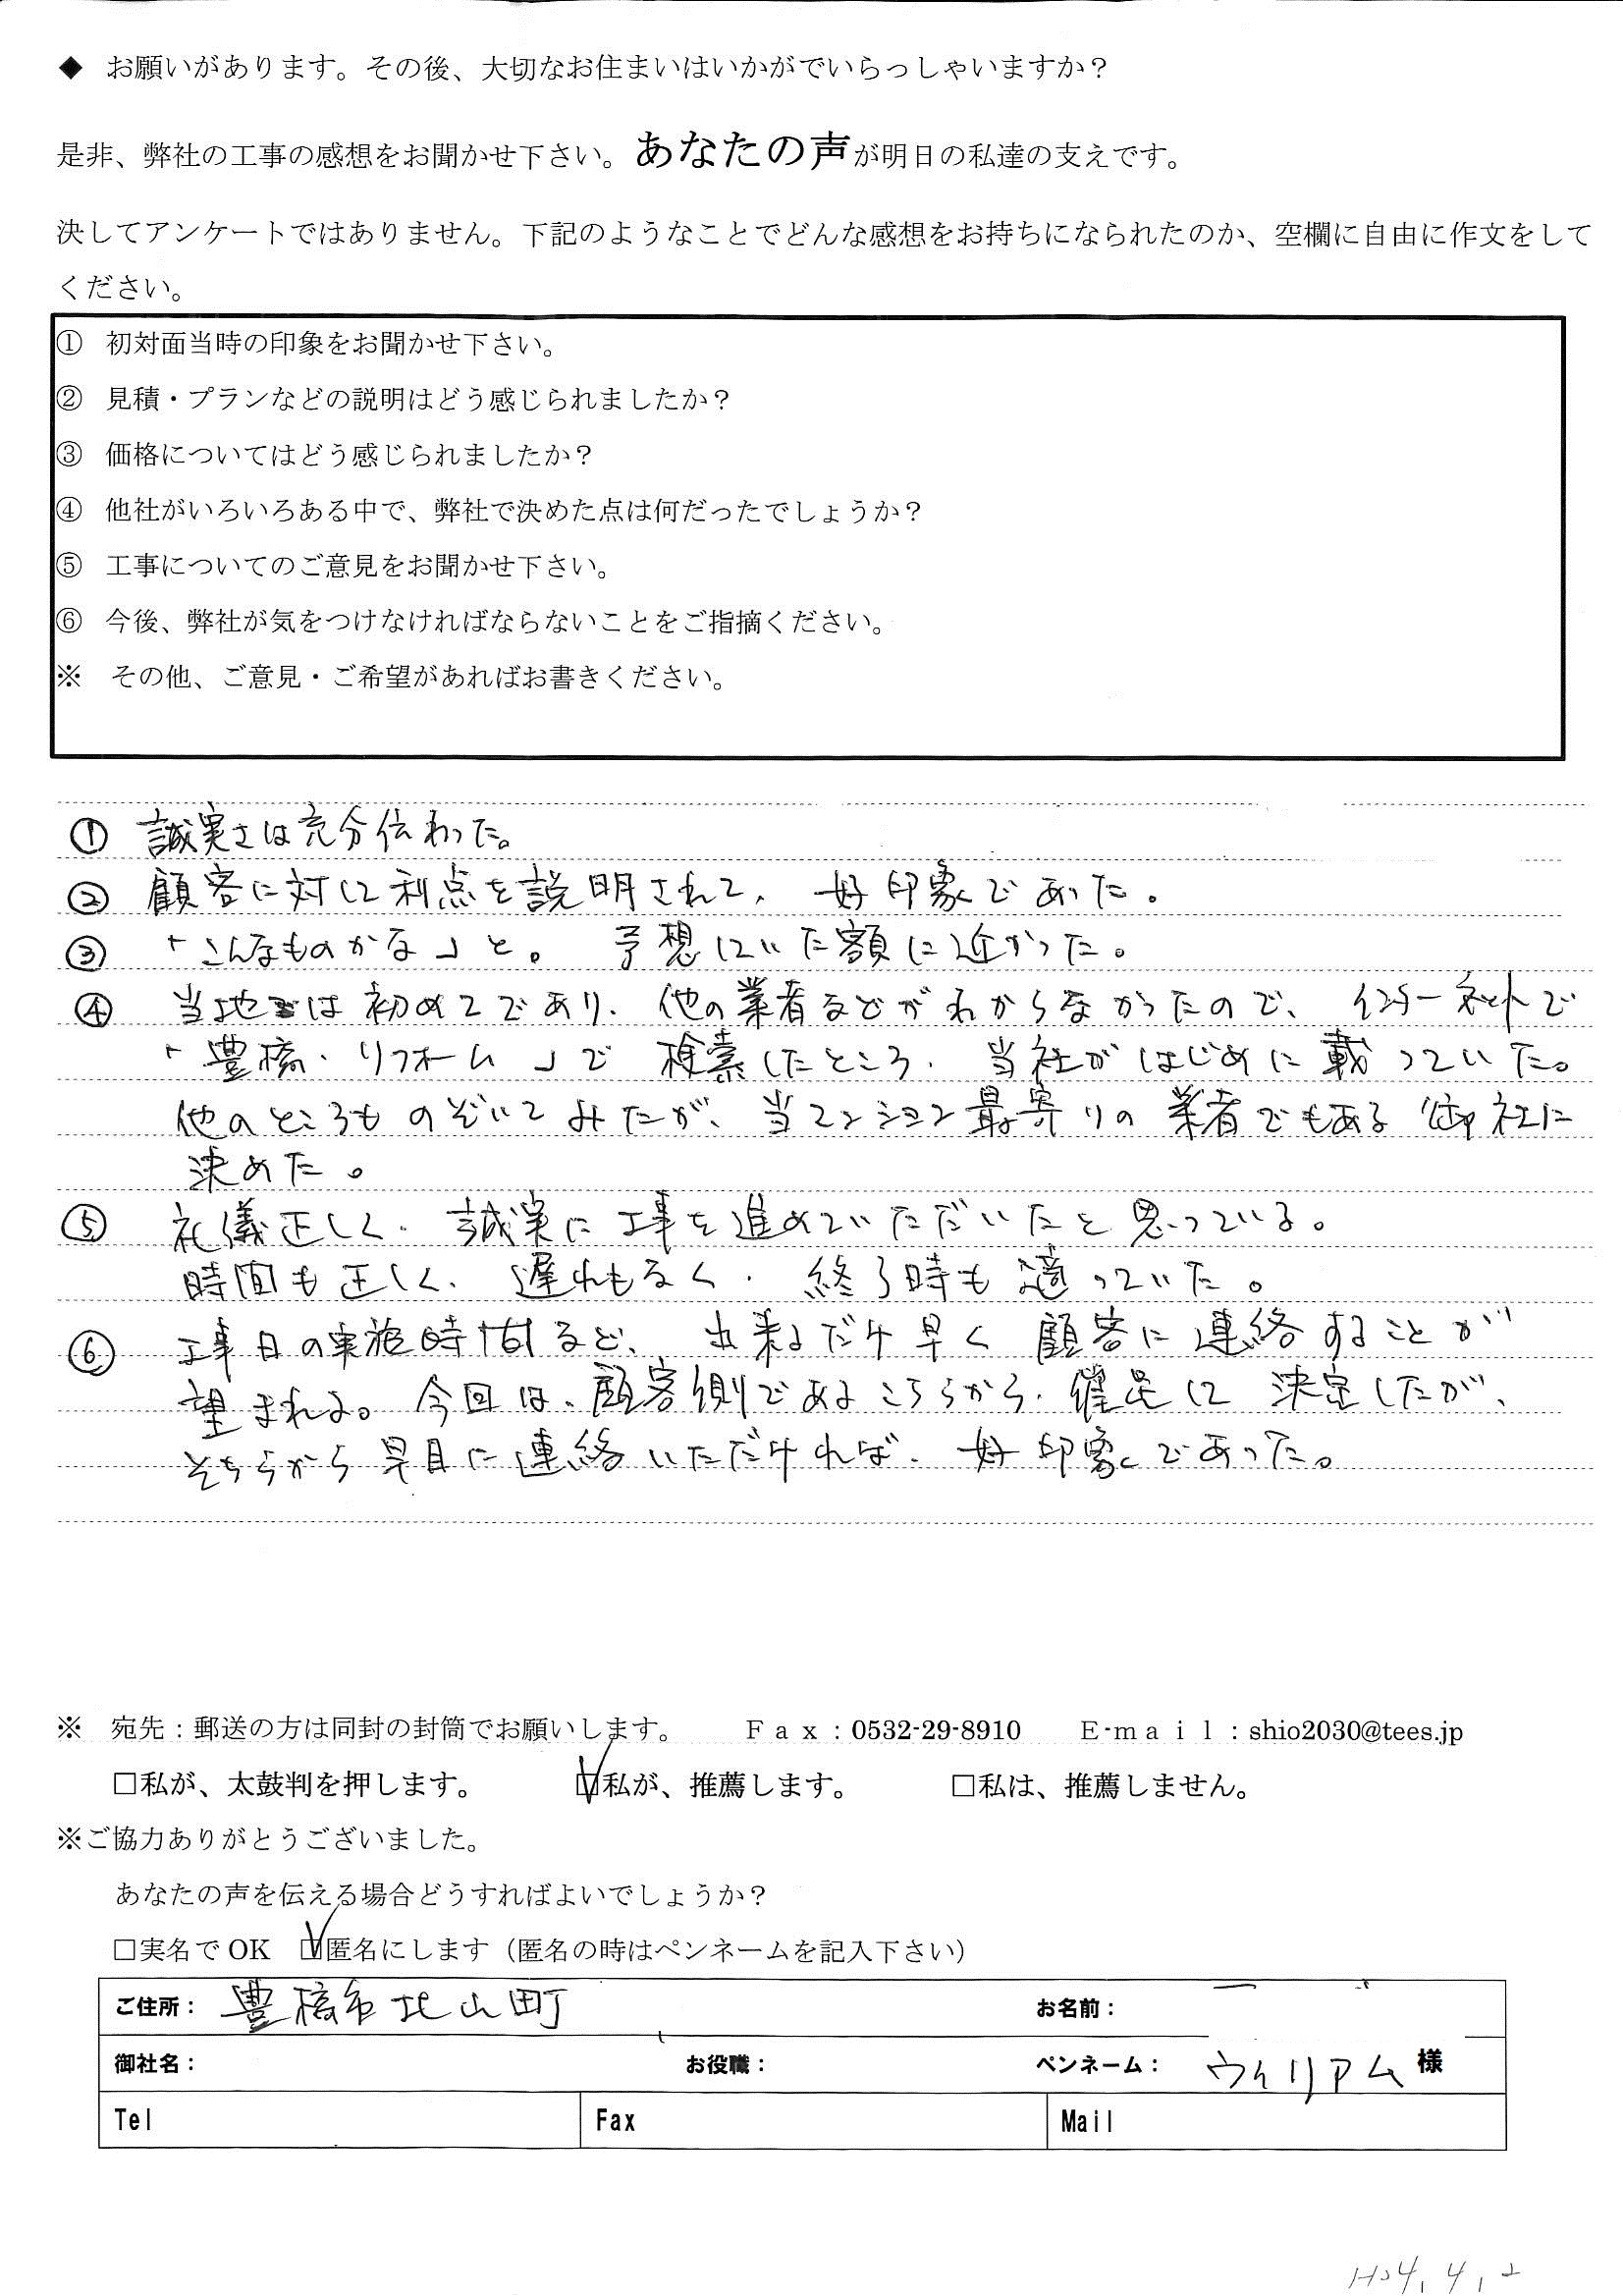 ◆ お願いがあります。その後、大切なお住まいはいかがでいらっしゃいますか？
是非、弊社の工事の感想をお聞かせ下さい。あなたの声が明日の私達の支えです。
決してアンケートではありません。下記のようなことでどんな感想をお持ちになられたのか、空欄に自由に作文をして
ください。
① 初対面当時の印象をお聞かせ下さい。
② 見積・プランなどの説明はどう感じられましたか？
③ 価格についてはどう感じられましたか？
④ 他社がいろいろある中で、弊社で決めた点は何だったでしょうか？
⑤ 工事についてのご意見をお聞かせ下さい。
⑥ 今後、弊社が気をつけなければならないことをご指摘ください。
※ その他、ご意見・ご希望があればお書きください。
① 誠実さは充分伝わった。
② 顧客に対して利点を説明されて、好印象であった。
③ 「こんなものかな」と。 予想していた額に近かった。
④ 当地では初めてであり、他の業者などがわからなかったので、インターネットで
「豊橋・リフォーム」で検索したところ、当社がはじめに載っていた。
他のところものぞいてみたが、当マンション最寄りの業者でもある御社に
決めた。
⑤ 礼儀正しく、誠実に工事を進めていただいたと思っている。
時間も正しく、遅れもなく、終了時も適っていた。
⑥ 工事日の実施時間など、出来るだけ早く顧客に連絡することが
望まれる。今回は、顧客側であるこちらから、催促して決定したが、
そちらから早目に連絡いただければ、好印象であった。
※ 宛先：郵送の方は同封の封筒でお願いします。 Ｆａｘ：0532-29-8910 Ｅ-ｍａｉｌ：shio2030@tees.jp
□私が、太鼓判を押します。 ☑私が、推薦します。 □私は、推薦しません。
※ご協力ありがとうございました。
あなたの声を伝える場合どうすればよいでしょうか？
□実名で OK ☑匿名にします（匿名の時はペンネームを記入下さい）
ご住所： 豊橋市北山町 お名前：
御社名： お役職： ペンネーム： ウィリアム 様
Tel Fax Mail
H24.4.2